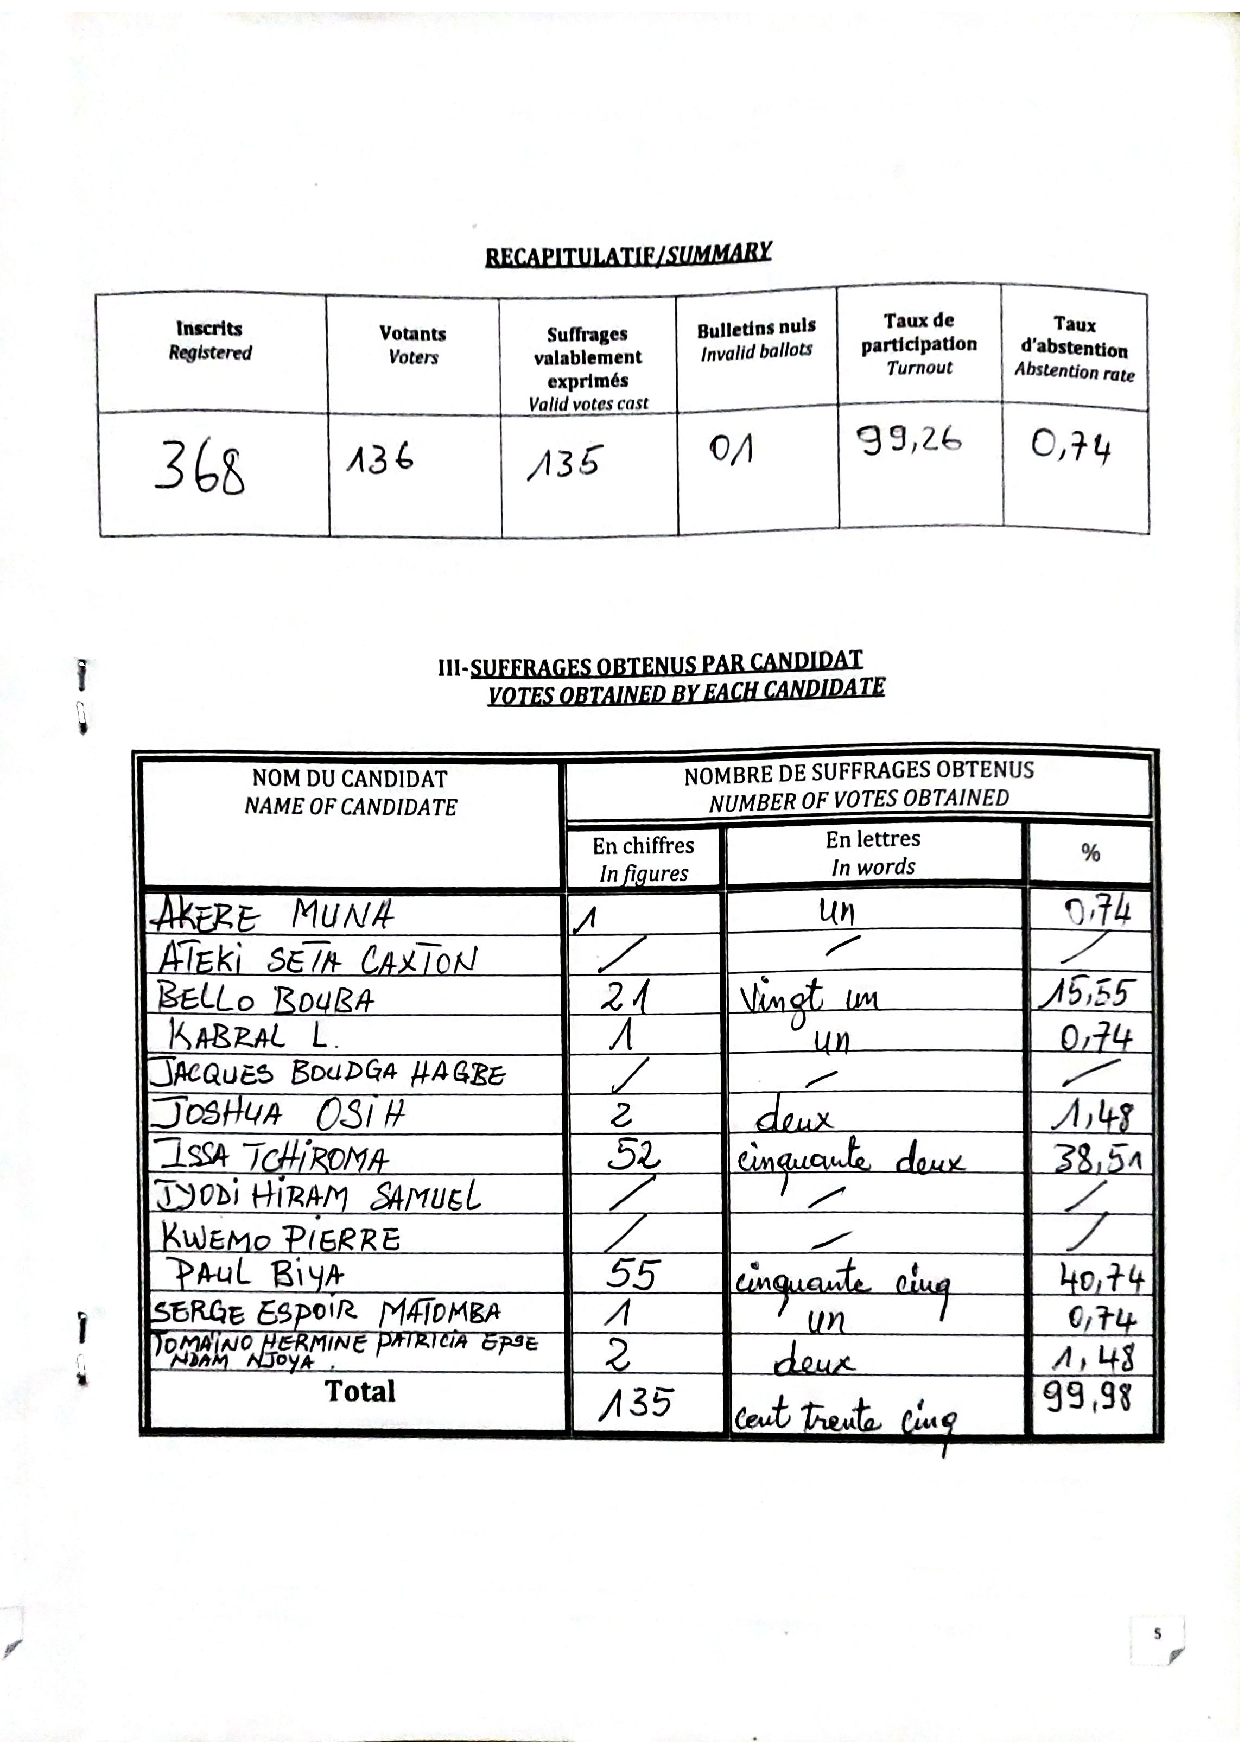 RECAPITULATIF/SUMMARY
Inscrits
Registered
Votants
Voters
Suffrages
valablement
exprimés
Valid votes cast
Bulletins nuls
Invalid ballots
Taux de
participation
Turnout
Taux
d'abstention
Abstention rate
368 136 135 01 99,26 0,74
III-SUFFRAGES OBTENUS PAR CANDIDAT
VOTES OBTAINED BY EACH CANDIDATE
NOM DU CANDIDAT
NAME OF CANDIDATE
NOMBRE DE SUFFRAGES OBTENUS
NUMBER OF VOTES OBTAINED
En chiffres
In figures
En lettres
In words
%
AKERE MUNA 1 un 0,74
ATEKI SETA CAXTON / / /
BELLO BOUBA 21 Vingt un 15,55
KABRAL L. 1 un 0,74
JACQUES BOUDGA HAGBE / / /
JOSHUA OSIH 2 deux 1,48
ISSA TCHIROMA 52 cinquante deux 38,51
JYODI HIRAM SAMUEL / / /
KWEMO PIERRE / / /
PAUL BIYA 55 cinquante cinq 40,74
SERGE ESPOIR MATOMBA 1 un 0,74
TOMAÏNO HERMINE PATRICIA EPSE
NDAM NJOYA. 2 deux 1,48
Total 135 cent trente cinq 99,98
5